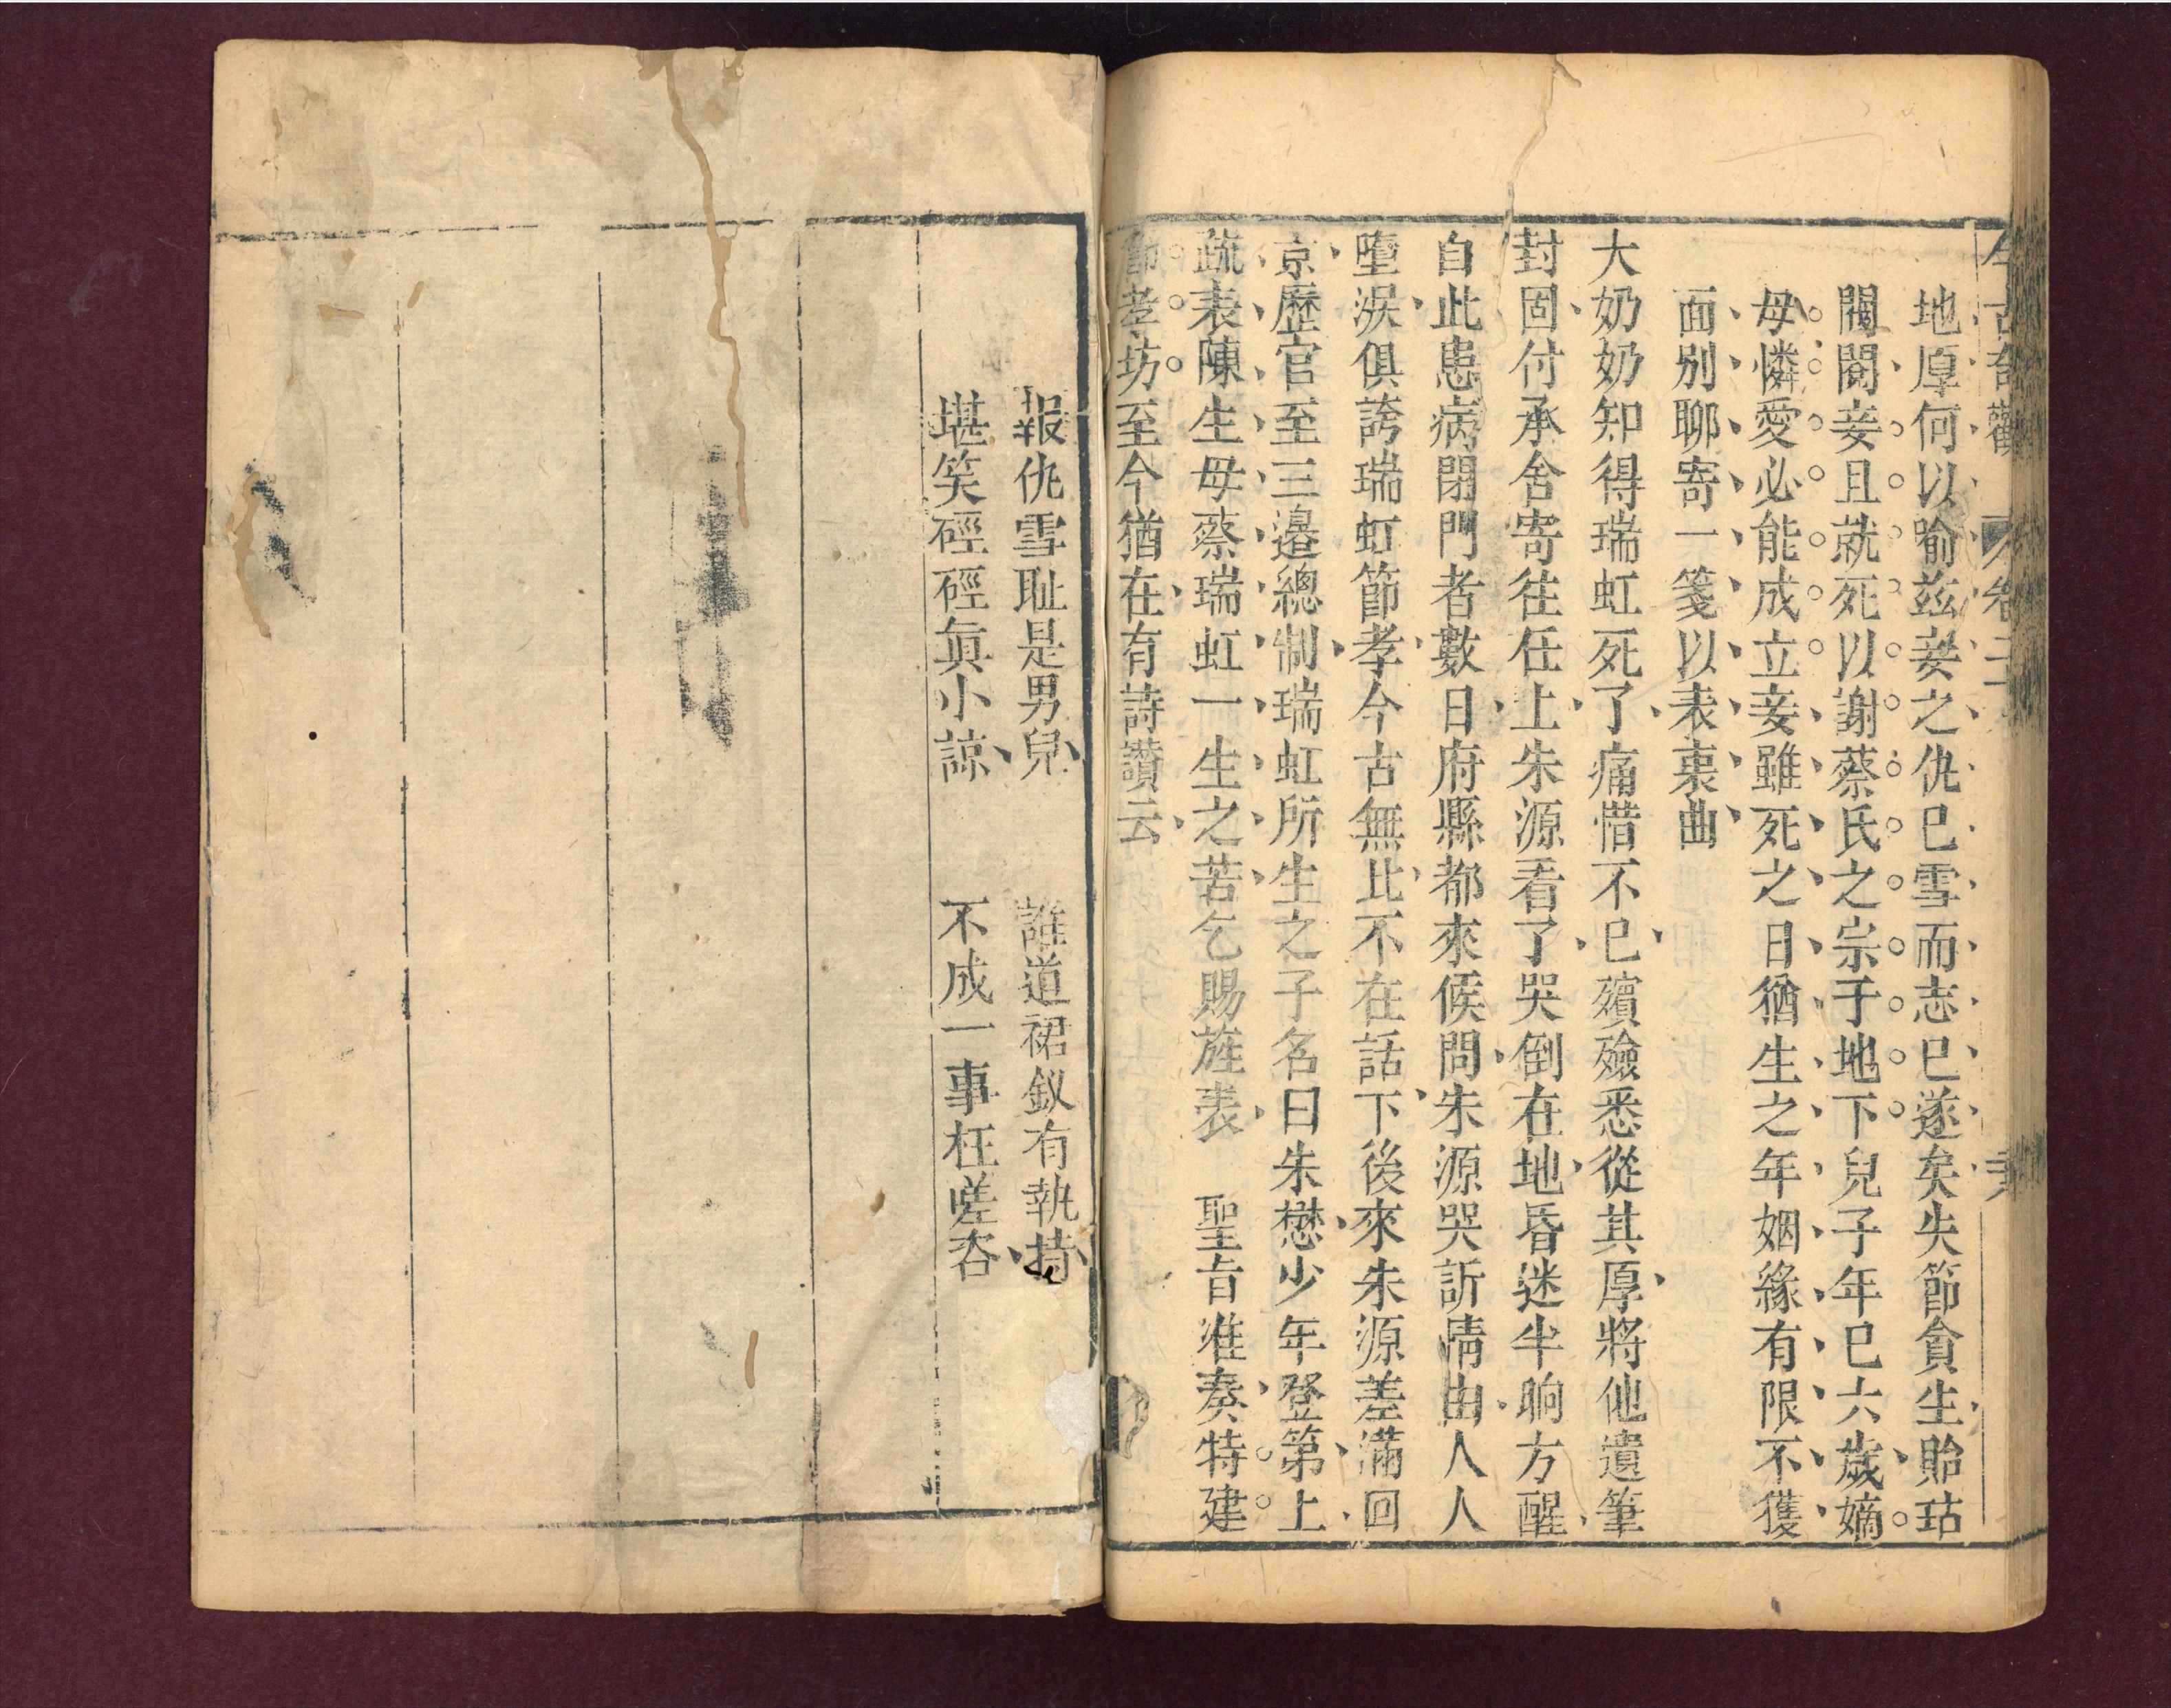 今古奇觀
地厚何以喻玆妾之仇已雪而志已遂矣失節貪生貽玷
閥閱妾且就死以謝蔡氏之宗于地下兒子年已六歲嫡
母憐愛必能成立妾雖死之日猶生之年姻緣有限不獲
面別聊寄一箋以表衷曲
大奶奶知得瑞虹死了痛惜不已殯殮悉從其厚將他遺筆
封固付承舍寄徃任上朱源看了哭倒在地昏迷半晌方醒
自此患病閉門者數日府縣都來候問朱源哭訴情由人人
墮淚俱誇瑞虹節孝今古無比不在話下後來朱源差滿回
京歷官至三邊總制瑞虹所生之子名曰朱懋少年登第上
疏表陳生母蔡瑞虹一生之苦乞賜旌表　聖旨准奏特建
節孝坊至今猶在有詩讚云
報仇雪耻是男兒　誰道裙釵有執持
堪笑硜硜眞小諒　不成一事枉嗟咨